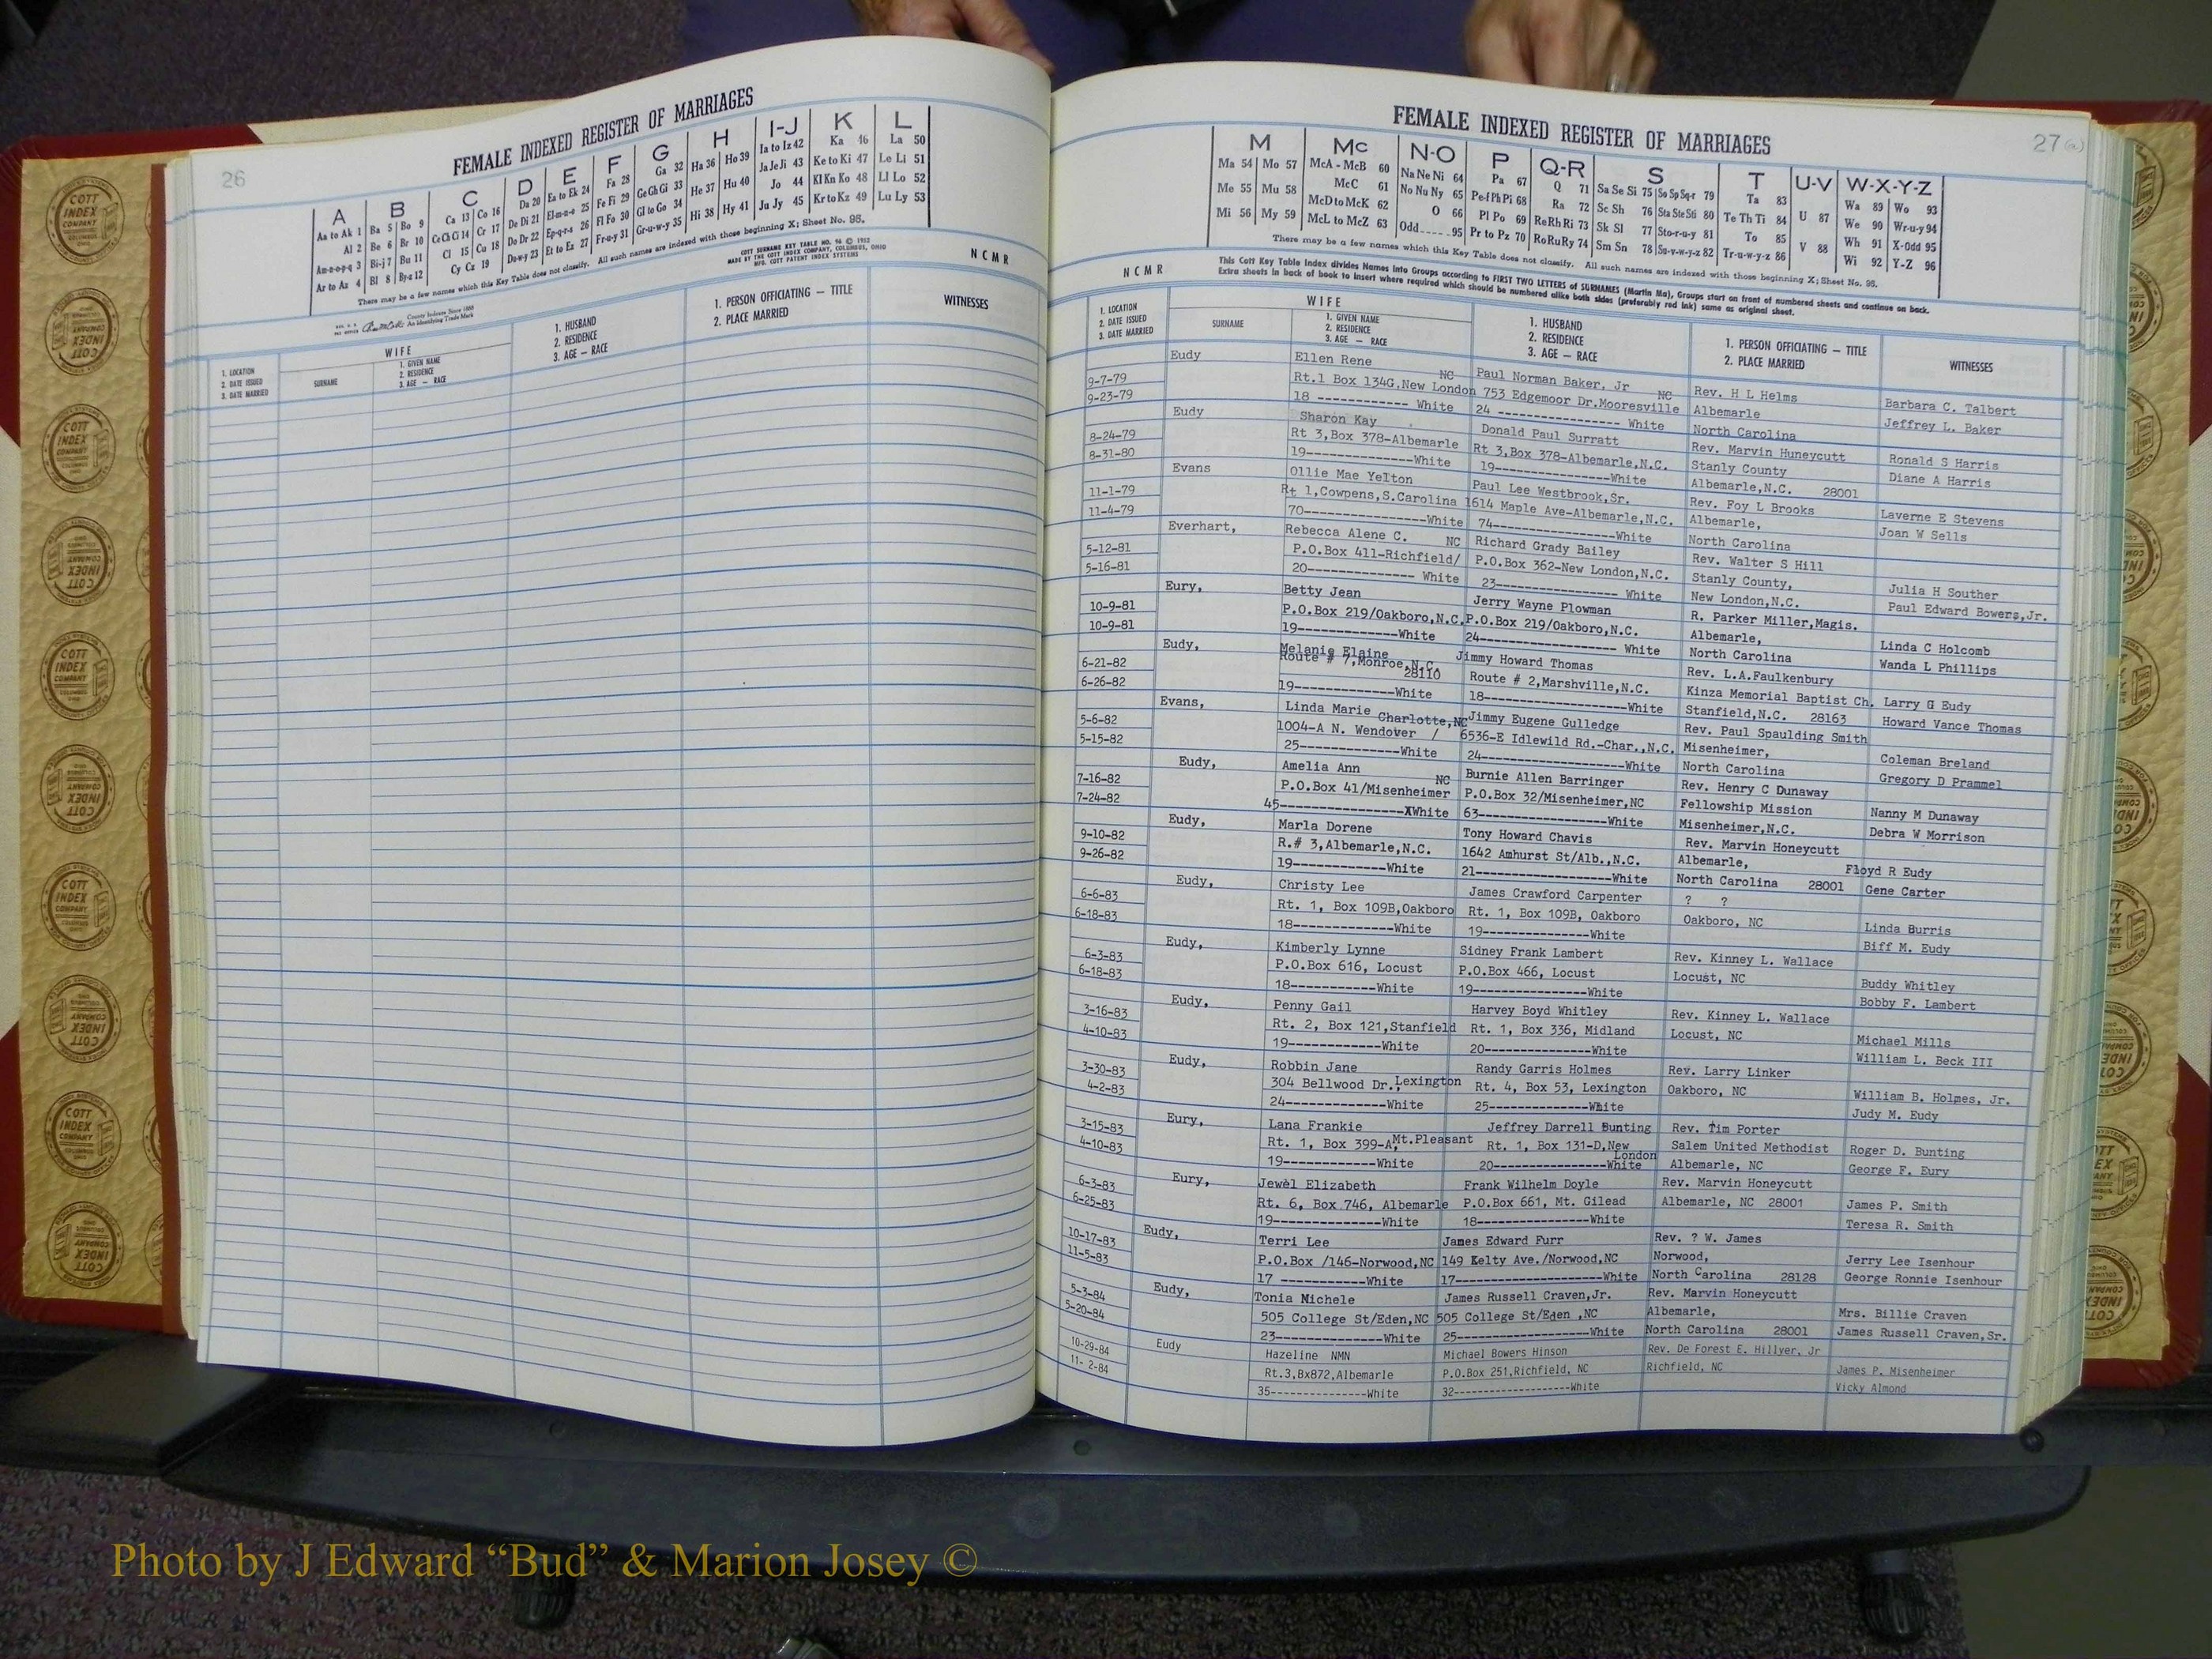 26
FEMALE INDEXED REGISTER OF MARRIAGES
A B C D E F G H I-J K L
Aa to Ak 1 Ba 5 Bo 9 Ca 13 Co 16 Da 20 Ea to Ek 24 Fa 28 Ga 32 Ha 36 Ho 39 Ia to Iz 42 Ka 46 La 50
Al 2 Be 6 Br 10 Ce Ch Ci 14 Cr 17 De Di 21 El-m-n-o 25 Fe Fi 29 Ge Gh Gi 33 He 37 Hu 40 Ja Je Ji 43 Ke to Ki 47 Le Li 51
Am-n-o-p-q 3 Bi-j 7 Bu 11 Cl 15 Cu 18 Do Dr 22 Ep-q-r-s 26 Fl Fo 30 Gl to Go 34 Hi 38 Hy 41 Jo 44 Kl Kn Ko 48 Ll Lo 52
Ar to Az 4 Bl 8 By-z 12 Cy Cz 19 Du-w-y 23 Et to Ez 27 Fr-u-y 31 Gr-u-w-y 35 Ju Jy 45 Kr to Kz 49 Lu Ly 53
There may be a few names which this Key Table does not classify. All such names are indexed with those beginning X; Sheet No. 95.
COTT SURNAME KEY TABLE NO. 96 © 1952
MADE BY THE COTT INDEX COMPANY, COLUMBUS, OHIO
MFG. COTT PATENT INDEX SYSTEMS
NCMR
County Indexes Since 1888
An Identifying Trade Mark
1. LOCATION
2. DATE ISSUED
3. DATE MARRIED
WIFE
SURNAME
1. GIVEN NAME
2. RESIDENCE
3. AGE — RACE
1. HUSBAND
2. RESIDENCE
3. AGE — RACE
1. PERSON OFFICIATING — TITLE
2. PLACE MARRIED
WITNESSES
27(a)
FEMALE INDEXED REGISTER OF MARRIAGES
M Mc N-O P Q-R S T U-V W-X-Y-Z
Ma 54 Mo 57 McA - McB 60 Na Ne Ni 64 Pa 67 Q 71 Sa Se Si 75 So Sp Sq-r 79 Ta 83 Wa 89 Wo 93
Me 55 Mu 58 McC 61 No Nu Ny 65 Pe-f Ph Pi 68 Ra 72 Sc Sh 76 Sta Ste Sti 80 Te Th Ti 84 U 87 We 90 Wr-u-y 94
Mi 56 My 59 McD to McK 62 O 66 Pl Po 69 Re Rh Ri 73 Sk Sl 77 Sto-r-u-y 81 To 85 V 88 Wh 91 X-Odd 95
McL to McZ 63 Odd-----95 Pr to Pz 70 Ro Ru Ry 74 Sm Sn 78 Su-v-w-y-z 82 Tr-u-w-y-z 86 Wi 92 Y-Z 96
There may be a few names which this Key Table does not classify. All such names are indexed with those beginning X; Sheet No. 95.
NCMR
This Cott Key Table Index divides Names into Groups according to FIRST TWO LETTERS of SURNAMES (Martin Ma), Groups start on front of numbered sheets and continue on back.
Extra sheets in back of book to insert where required which should be numbered alike both sides (preferably red ink) same as original sheet.
1. LOCATION
2. DATE ISSUED
3. DATE MARRIED
WIFE
SURNAME
1. GIVEN NAME
2. RESIDENCE
3. AGE — RACE
1. HUSBAND
2. RESIDENCE
3. AGE — RACE
1. PERSON OFFICIATING — TITLE
2. PLACE MARRIED
WITNESSES
Eudy Ellen Rene NC Paul Norman Baker, Jr NC Rev. H L Helms
9-7-79 Rt.1 Box 134G,New London 753 Edgemoor Dr.Mooresville Albemarle Barbara C. Talbert
9-23-79 18 ------------ White 24 ------------- White North Carolina Jeffrey L. Baker
Eudy Sharon Kay Donald Paul Surratt Rev. Marvin Huneycutt
8-24-79 Rt 3,Box 378-Albemarle Rt 3,Box 378-Albemarle,N.C. Stanly County Ronald S Harris
8-31-80 19--------------White 19--------------White Albemarle,N.C. 28001 Diane A Harris
Evans Ollie Mae Yelton Paul Lee Westbrook,Sr. Rev. Foy L Brooks
11-1-79 Rt 1,Cowpens,S.Carolina 1614 Maple Ave-Albemarle,N.C. Albemarle, Laverne E Stevens
11-4-79 70---------------White 74--------------White North Carolina Joan W Sells
Everhart, Rebecca Alene C. NC Richard Grady Bailey Rev. Walter S Hill
5-12-81 P.O.Box 411-Richfield/ P.O.Box 362-New London,N.C. Stanly County, Julia H Souther
5-16-81 20------------- White 23------------- White New London,N.C. Paul Edward Bowers,Jr.
Eury, Betty Jean Jerry Wayne Plowman R. Parker Miller,Magis.
10-9-81 P.O.Box 219/Oakboro,N.C. P.O.Box 219/Oakboro,N.C. Albemarle, Linda C Holcomb
10-9-81 19-------------White 24--------------- White North Carolina Wanda L Phillips
Eudy, Melanie Elaine Jimmy Howard Thomas Rev. L.A.Faulkenbury
6-21-82 Route # 7,Monroe,N.C. 28110 Route # 2,Marshville,N.C. Kinza Memorial Baptist Ch. Larry G Eudy
6-26-82 19-------------White 18---------------White Stanfield,N.C. 28163 Howard Vance Thomas
Evans, Linda Marie Charlotte,NC Jimmy Eugene Gulledge Rev. Paul Spaulding Smith
5-6-82 1004-A N. Wendover / 6536-E Idlewild Rd.-Char.,N.C. Misenheimer, Coleman Breland
5-15-82 25-------------White 24-----------------White North Carolina Gregory D Prammel
Eudy, Amelia Ann NC Burnie Allen Barringer Rev. Henry C Dunaway
7-16-82 P.O.Box 41/Misenheimer P.O.Box 32/Misenheimer,NC Fellowship Mission Nanny M Dunaway
7-24-82 45---------------XWhite 63---------------White Misenheimer,N.C. Debra W Morrison
Eudy, Marla Dorene Tony Howard Chavis Rev. Marvin Honeycutt
9-10-82 R.# 3,Albemarle,N.C. 1642 Amhurst St/Alb.,N.C. Albemarle, Floyd R Eudy
9-26-82 19-------------White 21-----------------White North Carolina 28001 Gene Carter
Eudy, Christy Lee James Crawford Carpenter ? ?
6-6-83 Rt. 1, Box 109B,Oakboro Rt. 1, Box 109B, Oakboro Oakboro, NC Linda Burris
6-18-83 18-------------White 19-------------White Biff M. Eudy
Eudy, Kimberly Lynne Sidney Frank Lambert Rev. Kinney L. Wallace
6-3-83 P.O.Box 616, Locust P.O.Box 466, Locust Locust, NC Buddy Whitley
6-18-83 18-----------White 19--------------White Bobby F. Lambert
Eudy, Penny Gail Harvey Boyd Whitley Rev. Kinney L. Wallace
3-16-83 Rt. 2, Box 121,Stanfield Rt. 1, Box 336, Midland Locust, NC Michael Mills
4-10-83 19------------White 20-------------White William L. Beck III
Eudy, Robbin Jane Randy Garris Holmes Rev. Larry Linker
3-30-83 304 Bellwood Dr., Lexington Rt. 4, Box 53, Lexington Oakboro, NC William B. Holmes, Jr.
4-2-83 24-------------White 25-------------White Judy M. Eudy
Eury, Lana Frankie Jeffrey Darrell Bunting Rev. Tim Porter
3-15-83 Rt. 1, Box 399-A, Mt.Pleasant Rt. 1, Box 131-D,New London Salem United Methodist Roger D. Bunting
4-10-83 19------------White 20---------------White Albemarle, NC George F. Eury
Eury, Jewel Elizabeth Frank Wilhelm Doyle Rev. Marvin Honeycutt
6-3-83 Rt. 6, Box 746, Albemarle P.O.Box 661, Mt. Gilead Albemarle, NC 28001 James P. Smith
6-25-83 19-------------White 18--------------White Teresa R. Smith
Eudy, Terri Lee James Edward Furr Rev. ? W. James
10-17-83 P.O.Box /146-Norwood,NC 149 Kelty Ave./Norwood,NC Norwood, Jerry Lee Isenhour
11-5-83 17 -----------White 17------------------White North Carolina 28128 George Ronnie Isenhour
Eudy, Tonia Michele James Russell Craven,Jr. Rev. Marvin Honeycutt
5-3-84 505 College St/Eden,NC 505 College St/Eden ,NC Albemarle, Mrs. Billie Craven
5-20-84 23--------------White 25----------------White North Carolina 28001 James Russell Craven,Sr.
Eudy Hazeline NMN Michael Bowers Hinson Rev. De Forest E. Hillyer, Jr
10-29-84 Rt.3,Bx872,Albemarle P.O.Box 251,Richfield, NC Richfield, NC James P. Misenheimer
11- 2-84 35---------------White 32------------------White Vicky Almond
Photo by J Edward “Bud” & Marion Josey ©